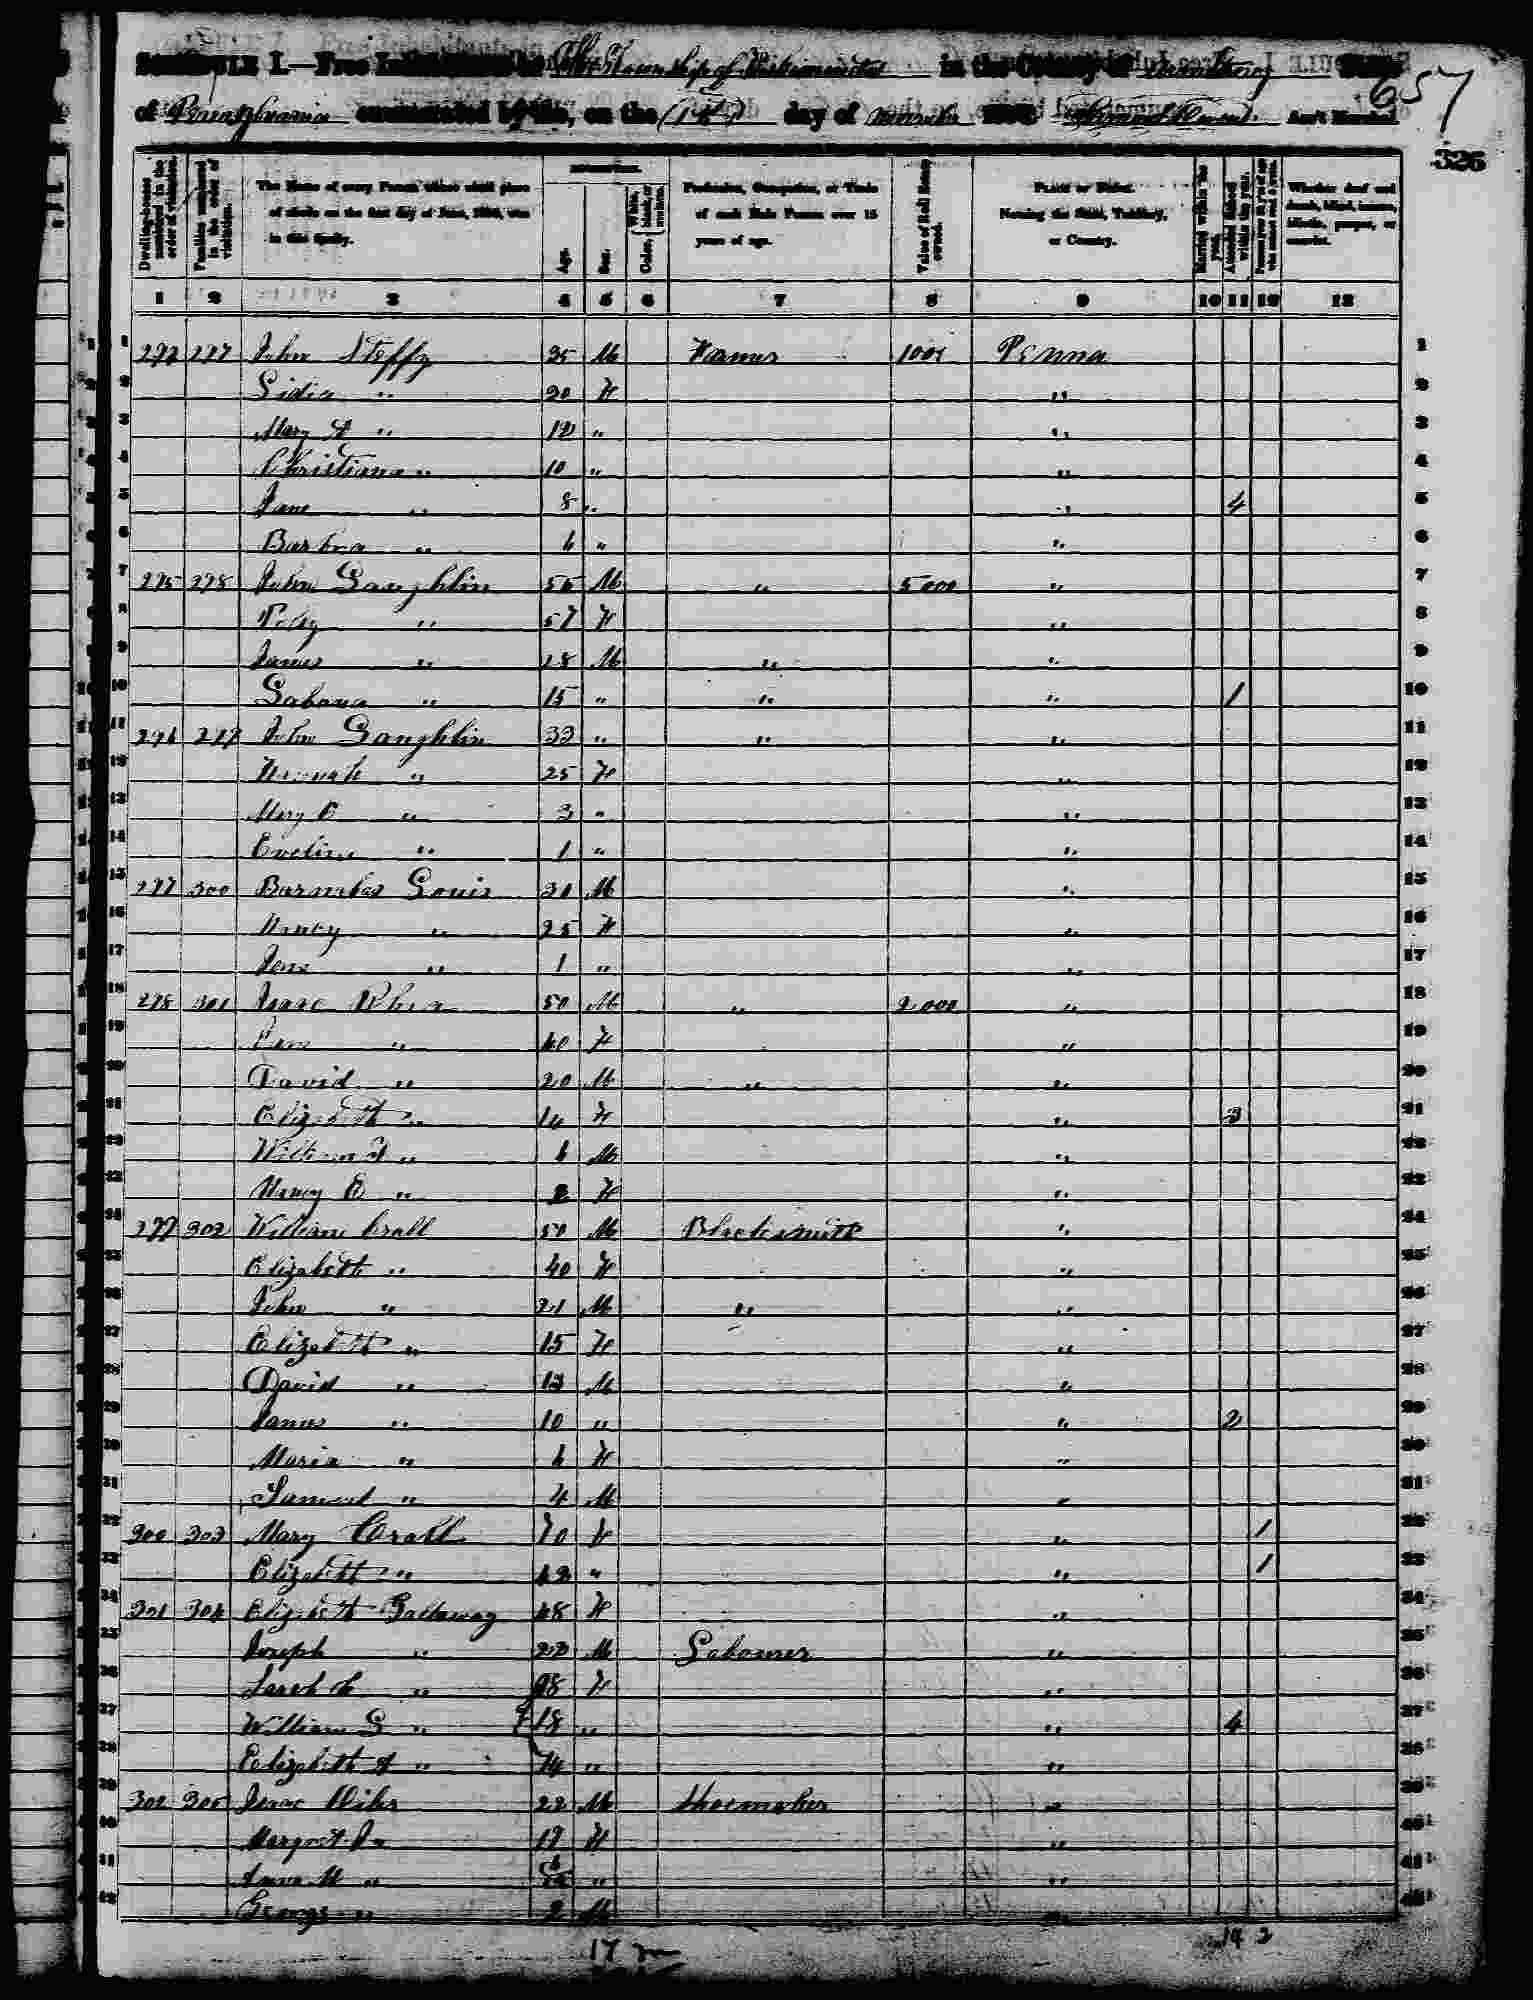 SCHEDULE I.—Free Inhabitants in The Township of Kiskiminetas in the County of Armstrong State
of Pennsylvania enumerated by me, on the (1st) day of 1850. Ass't Marshal.
657
326
Dwelling-houses numbered in the order of visitation.
Families numbered in the order of visitation.
The Name of every Person whose usual place of abode on the first day of June, 1850, was in this family.
DESCRIPTION.
Age.
Sex.
Color, White, black, or mulatto.
Profession, Occupation, or Trade of each Male Person over 15 years of age.
Value of Real Estate owned.
PLACE OF BIRTH. Naming the State, Territory, or Country.
Married within the year.
Attended School within the year.
Persons over 20 y'rs of age who cannot read & write.
Whether deaf and dumb, blind, insane, idiotic, pauper, or convict.
1 2 3 4 5 6 7 8 9 10 11 12 13
1 297 John Steffy 35 M Farmer Penna 1
2 Lidia " 30 F " 2
3 Mary A " 12 " " 3
4 Christiana " 10 " " 4
5 Jane " 8 " " 4 5
6 Barbra " 6 " " 6
7 295 298 John Laughlin 55 M " 5000 " 7
8 " 57 F " 8
9 James " 28 M " " 9
10 " 15 " " " 1 10
11 296 299 John Laughlin 33 " " " 11
12 Hannah " 25 F " 12
13 Mary E " 3 " " 13
14 Eveline " 1 " " 14
15 297 300 Barnabas Louis 31 M " 15
16 Nancy " 25 F " 16
17 " 1 " " 17
18 298 301 Isaac Rhea 50 M " 2000 " 18
19 " 40 F " 19
20 David " 20 M " " 20
21 Elizabeth " 14 F " 3 21
22 William " 6 M " 22
23 Nancy E " 2 F " 23
24 299 302 William Crall 50 M Blacksmith " 24
25 Elizabeth " 40 F " 25
26 John " 21 M " " 26
27 Elizabeth " 15 F " 27
28 David " 13 M " 28
29 James " 10 " " 2 29
30 Maria " 6 F " 30
31 Samuel " 4 M " 31
32 300 303 Mary Crall 70 F " 1 32
33 Elizabeth " 42 " " 1 33
34 301 304 Elizabeth Gallaway 48 F " 34
35 Joseph " 22 M Labourer " 35
36 Sarah " 28 F " 36
37 William S " 18 " " 4 37
38 Elizabeth A " 14 " " 38
39 302 305 Isaac 22 M Shoemaker " 39
40 Margret " 19 F " 40
41 Anna M " " " 41
42 George " 2 M " 42
17 14 2